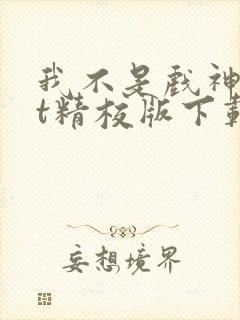 我不是戏神
t精校版下载
妄想境界